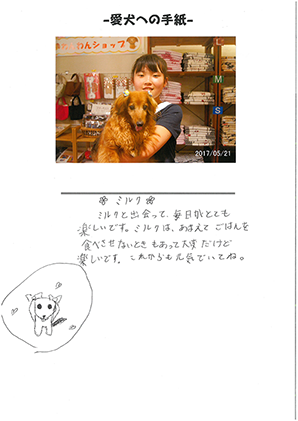 -愛犬への手紙-
わんショップ
M
S
2017/05/21
ミルク
ミルクと出会って、毎日がとても
楽しいです。ミルクは、あまえてごはんを
食べさせないときもあって大変だけど
楽しいです。これからも元気でいてね。